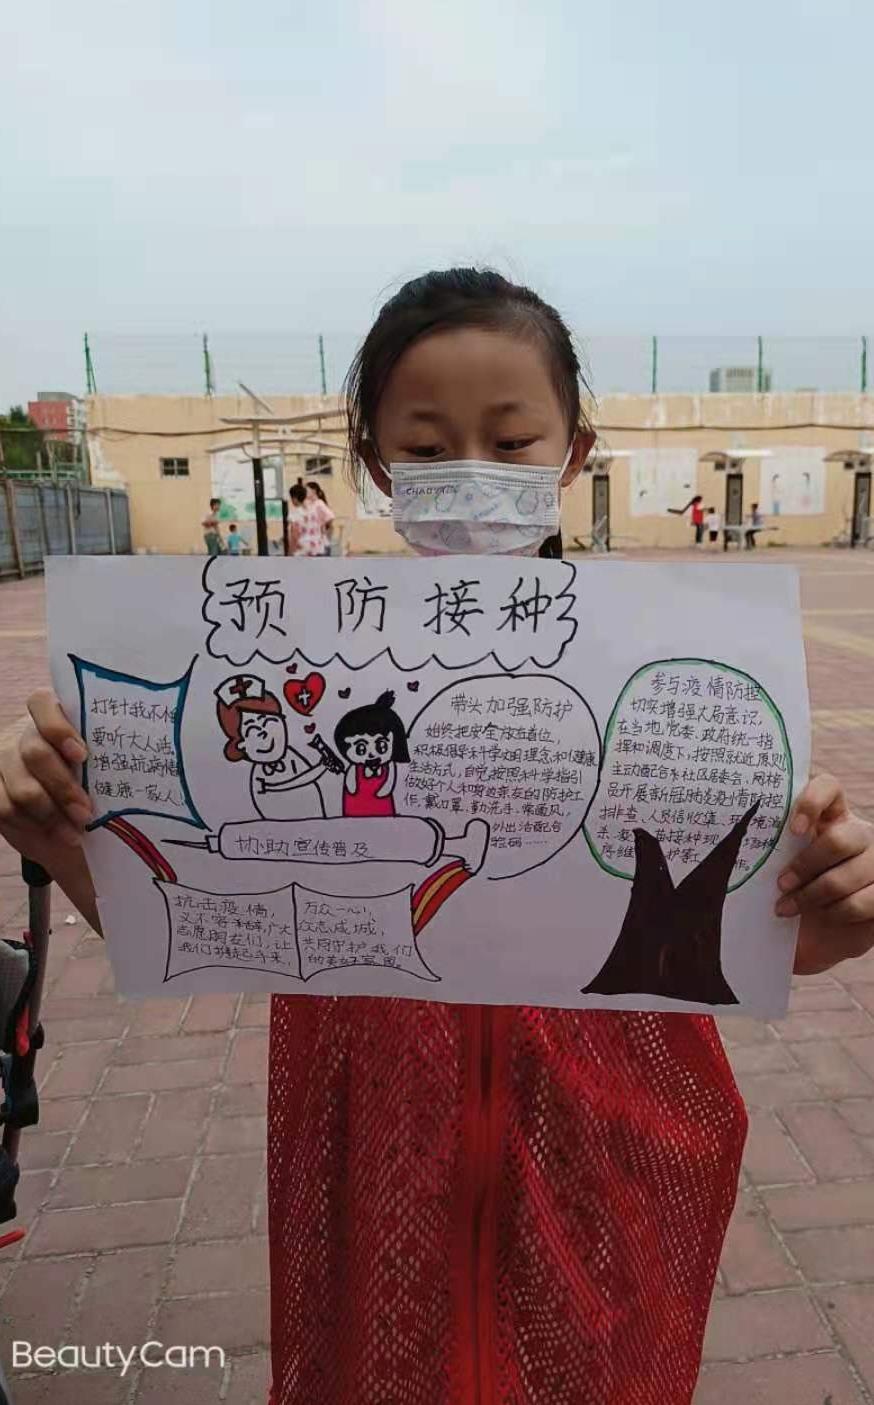 预防接种
打针我不怕
要听大人话。
增强抗病情
健康一家人!
带头加强防护
始终把安全放在首位,
积极倡导科学文明理念和健康
生活方式,自觉按照科学指引
做好个人和身边亲友的防护工
作,戴口罩、勤洗手、常通风,
外出洁配合
验码……
参与疫情防控
切实增强大局意识,
在当地党委、政府统一指
挥和调度下,按照就近原则,
主动配合社区居委会、网格
员开展新冠肺炎疫情防控
排查、人员信收集、环境消
杀、疫苗接种现场秩
序维护等工作。
协助宣传普及
抗击疫情,
义不容辞,广大
志愿朋友们,让
我们携起手来,
万众一心,
众志成城,
共同守护我们
的美好家园。
CHAOYA
BeautyCam